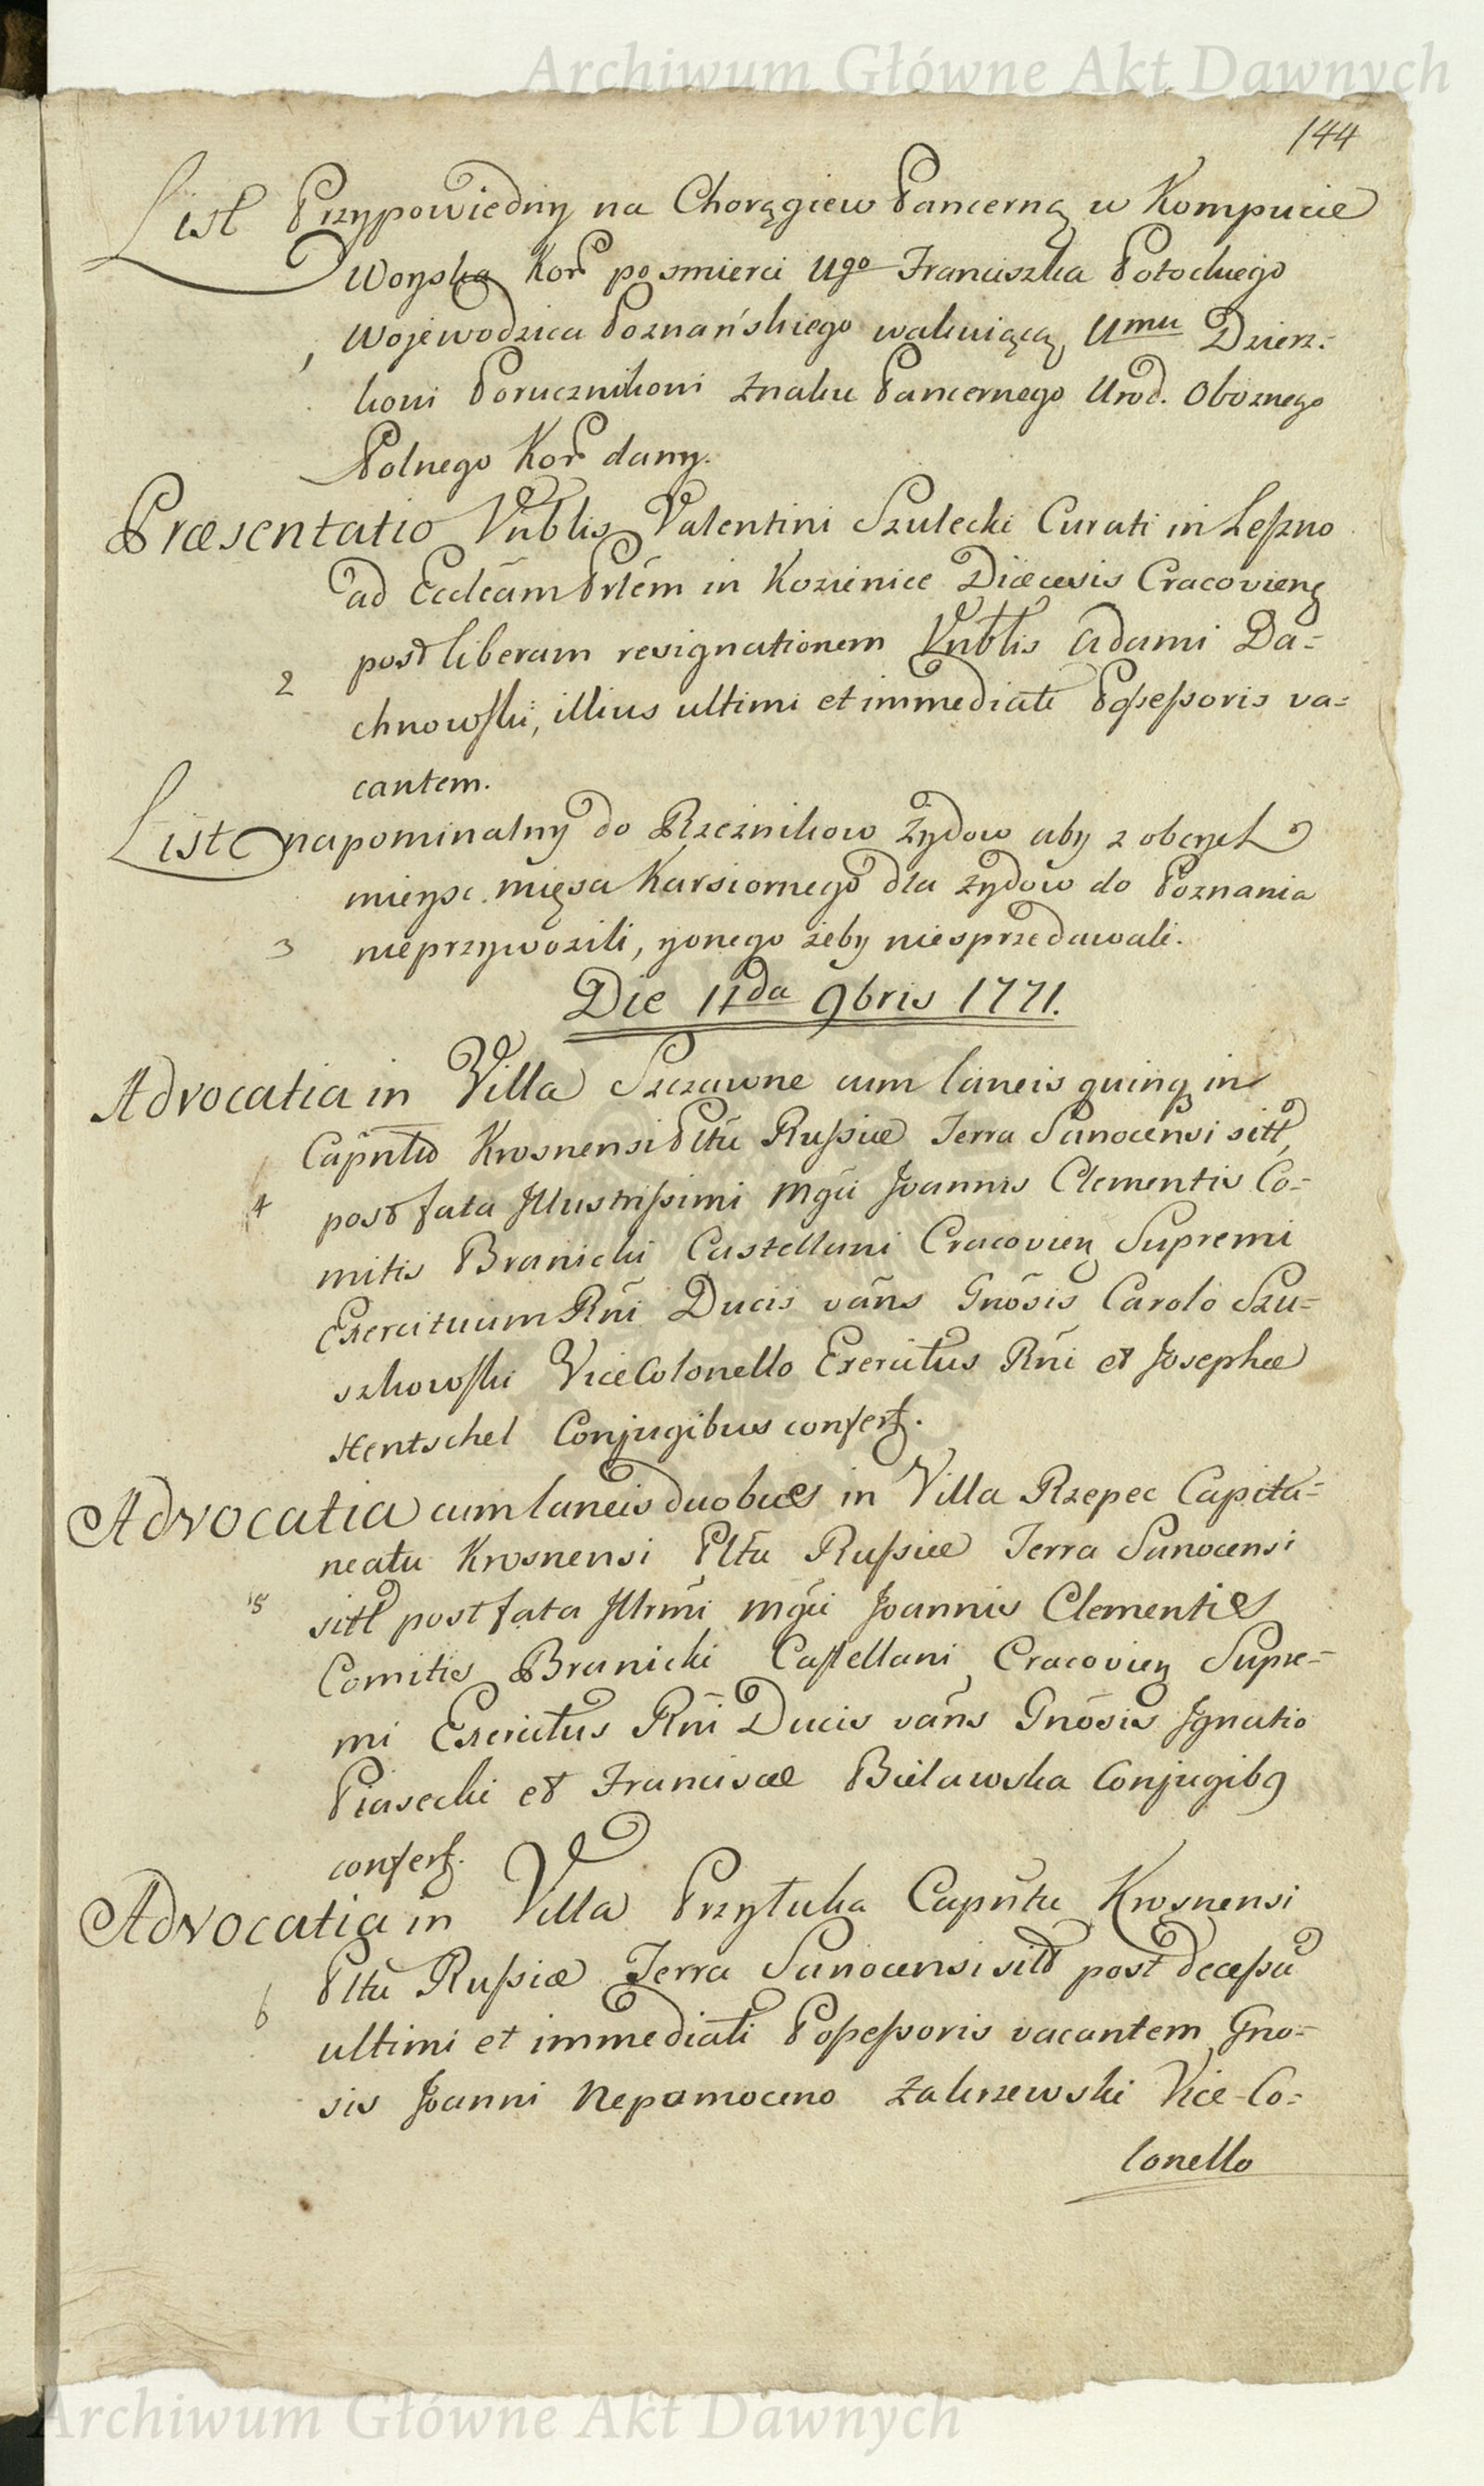 Archiwum Główne Akt Dawnych
144
List Przypowiedny na Chorągiew Pancerną w Kompucie
Woyska Kor. po smierci Ugo Franciszka Potockiego
1 Wojewodzica Poznańskiego wakuiącą, Umu Dzierz:
kowi Porucznikowi Znaku Pancernego Urod. Oboznego
Polnego Kor. dany.
Præsentatio Vnblis Valentini Szulecki Curati in Leszno
ad Ecclēam Prlēm in Kozienice Diæcesis Cracovien̄
post liberam resignationem Vnblis Adami Da=
2 chnowski, illius ultimi et immediati Possessoris va=
cantem.
List napominalny do Rzeznikow Żydow aby z obcych
mieysc mięsa Karsiornego dla żydow do Poznania
3 nieprzywozili, yonego żeby niesprzedawali.
Die 11da 9bris 1771.
Advocatia in Villa Szczawne cum laneis quinq in
Capn̄tu Krosnensi Pltū Russiæ Terra Sanocensi sitt,
4 post fata Illustrissimi Mgū Joannis Clementis Co=
mitis Branicki Castellani Cracovien̄ Supremi
Exercituum Rn̄i Ducis vān̄s Gnōsis Carolo Szu=
szkowski ViceColonello Exercitus Rn̄i et Josephæ
Hentschel Conjugibus confert.
Advocatia cum laneis duobus in Villa Rzepec Capita=
neatu Krosnensi Pltū Russiæ Terra Sanocensi
5 sitt post fata Illrmī Mgū Joannis Clementis
Comitis Branicki Castellani Cracovien̄ Supre=
mi Exercitus Rn̄i Ducis vān̄s Gnōsis Ignatio
Piasecki et Franciscæ Bielawska Conjugib9
confert.
Advocatia in Villa Przyłuka Capn̄tu Krosnensi
6 Pltū Russiæ Terra Sanocensi sitt post decessū
ultimi et immediati Possessoris vacantem Gno=
sis Joanni Nepomoceno Zakrzewski Vice-Co=
lonello
Archiwum Główne Akt Dawnych